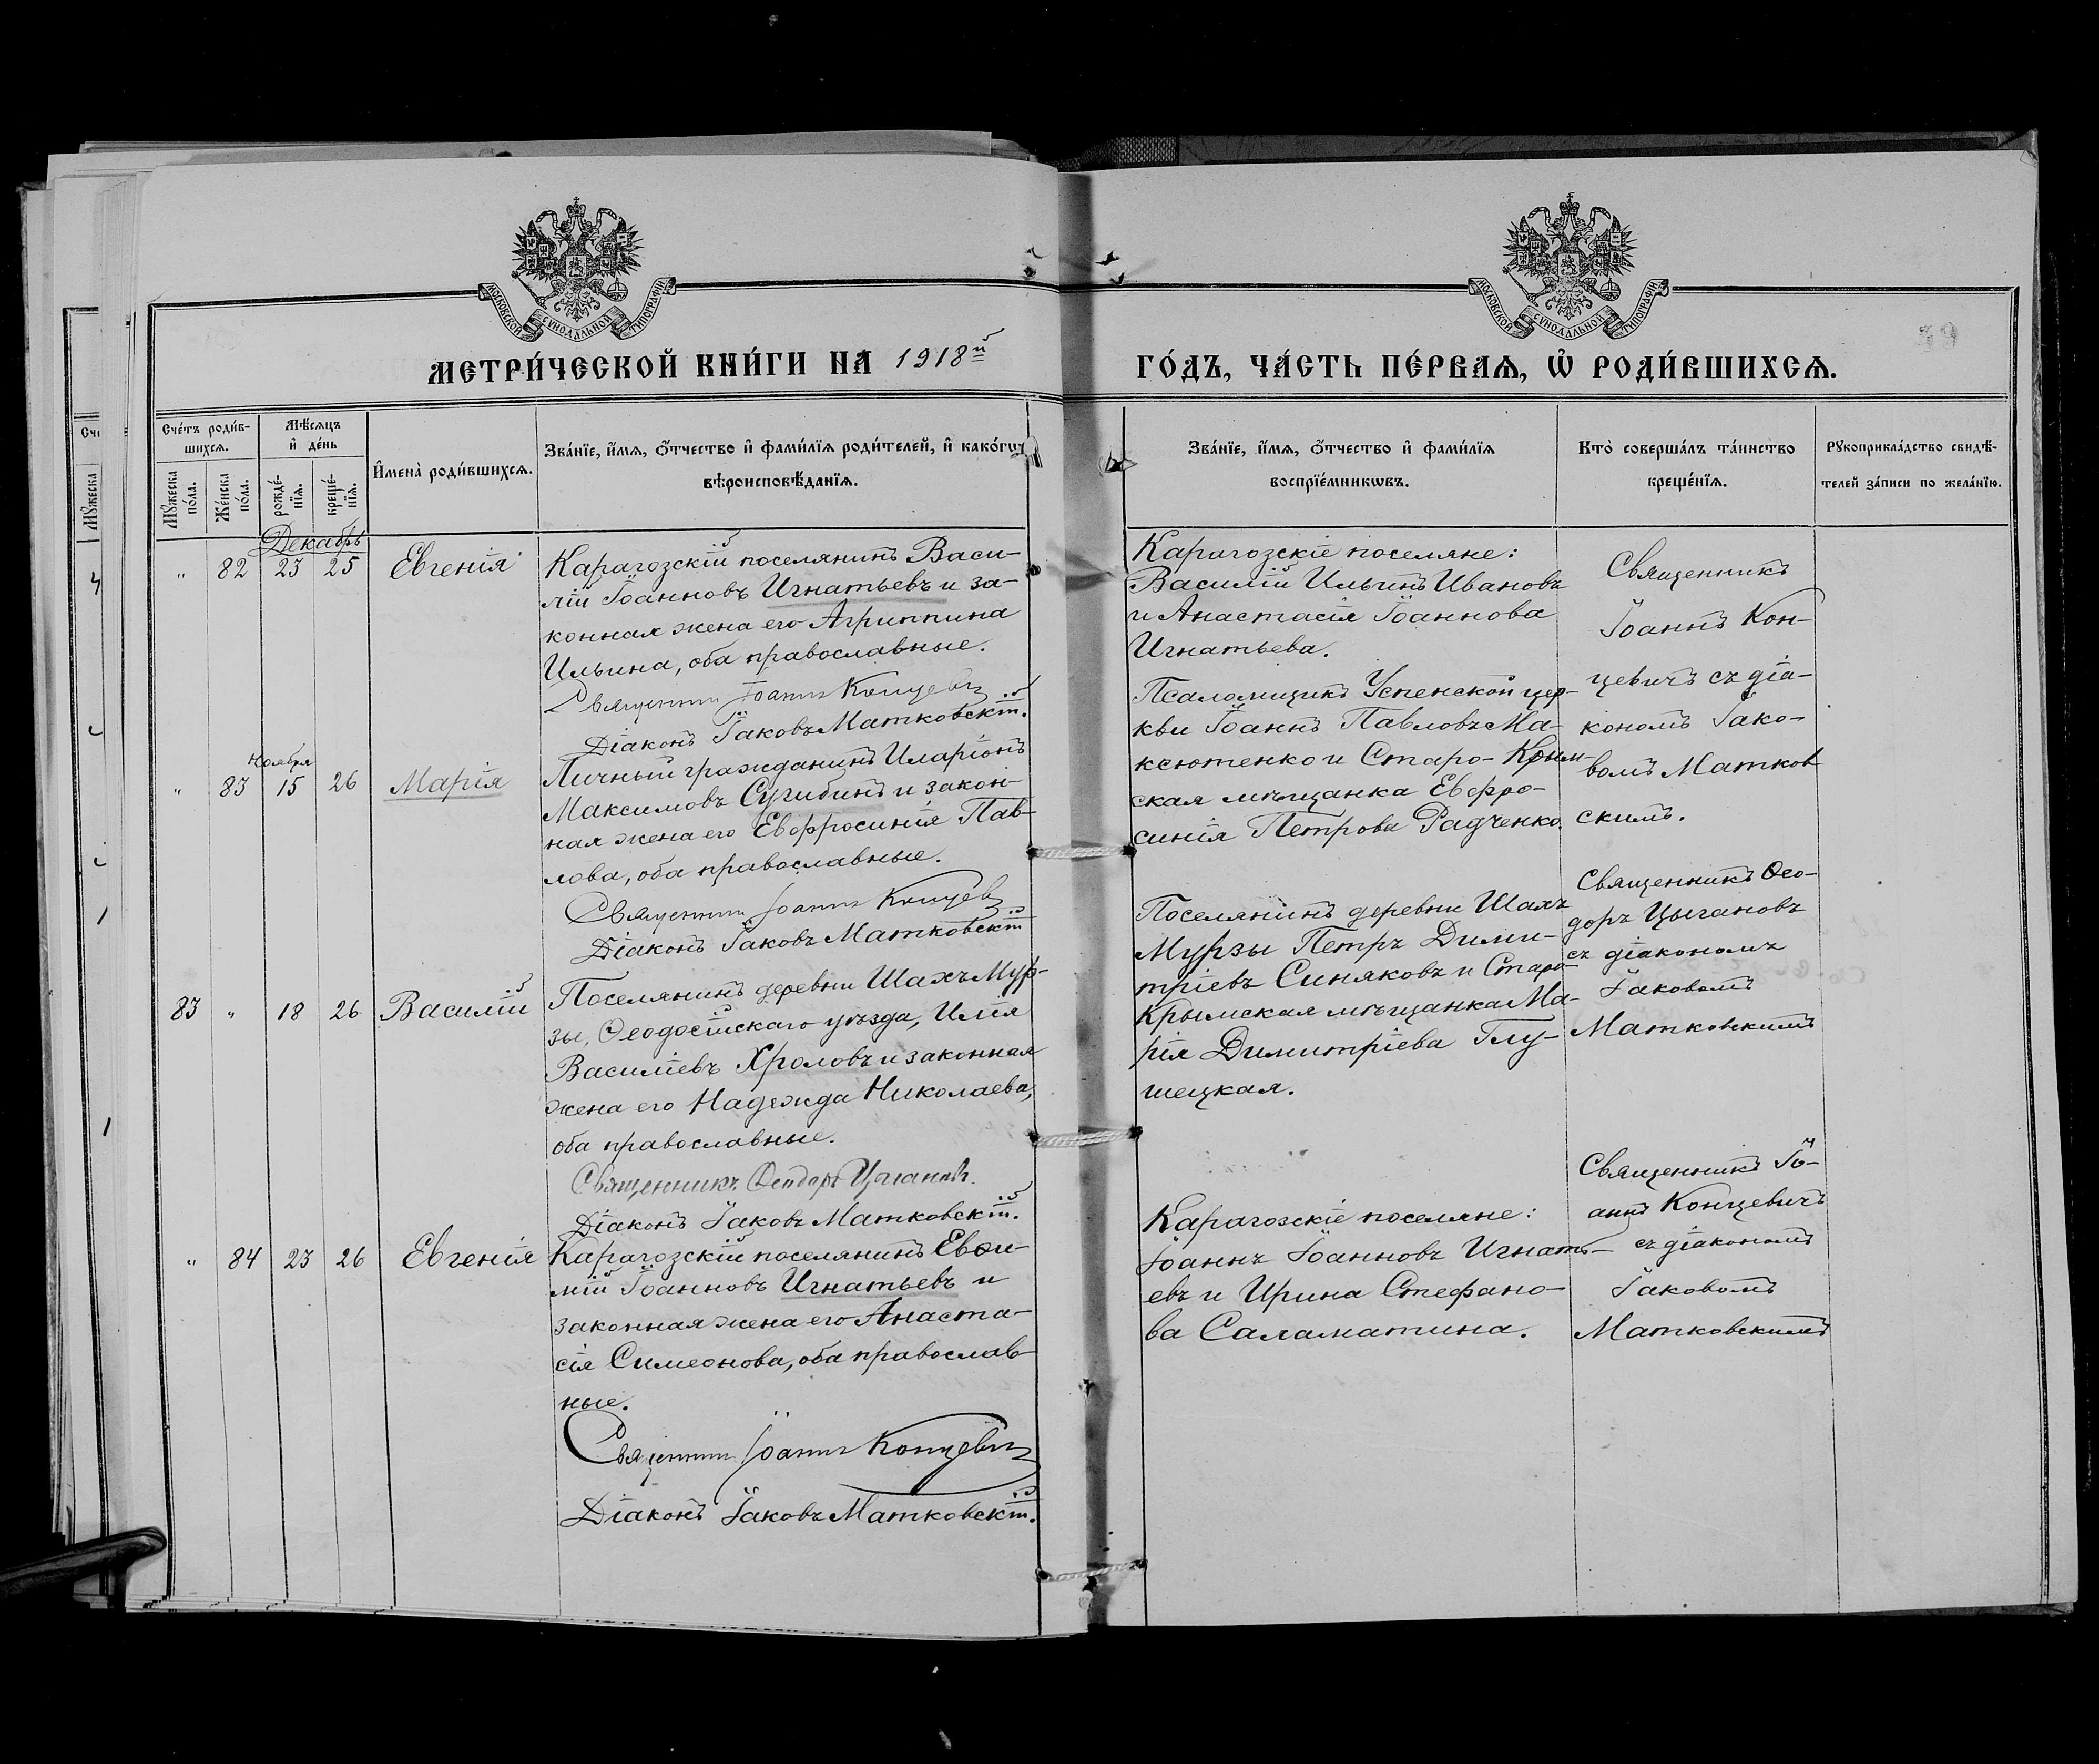 МОСКОВСКОЙ СѴНОДАЛЬНОЙ ТИПОГРАФІИ
МОСКОВСКОЙ СѴНОДАЛЬНОЙ ТИПОГРАФІИ
МЕТРИ́ЧЕСКОЙ КНИ́ГИ НА 1918й
ГО́ДЪ, ЧА́СТЬ ПЕ́РВАѦ, Ѡ҆ РОДИ́ВШИХСѦ.
Сче́тъ роди́в-
шихсѧ.
Мꙋ́жеска
по́ла.
Же́нска
по́ла.
Мѣ́сѧцъ
и҆ де́нь
рожде́-
нїѧ.
креще́-
нїѧ.
И҆мена̀ роди́вшихсѧ.
Зва́нїе, и҆́мѧ, ѻ҆́тчество и҆ фами́лїѧ роди́телей, и҆ како́гѡ
вѣ́роисповѣ́данїѧ.
Зва́нїе, и҆́мѧ, ѻ҆́тчество и҆ фами́лїѧ
воспрїе́мникѡвъ.
Кто̀ соверша́лъ та́инство
креще́нїѧ.
Рꙋкоприкла́дство свидѣ́-
телей за́писи по жела́нїю.
Декабрь
" 82 23 25 Евгенія
Карагозскій поселянинъ Васи-
лій Іоанновъ Игнатьевъ и за-
конная жена его Агриппина
Ильина, оба православные.
Священникъ Іоаннъ Концевичъ
Діаконъ Іаковъ Матковскій.
Карагозскіе поселяне:
Василій Ильинъ Ивановъ
и Анастасія Іоаннова
Игнатьева.
Священникъ
Іоаннъ Кон-
цевичъ съ діа-
кономъ Іако-
вомъ Матков
скимъ.
Ноября
" 83 15 26 Марія
Личный гражданинъ Иларіонъ
Максимовъ Сугибинъ и закон-
ная жена его Евфросинія Пав-
лова, оба православные.
Священникъ Іоаннъ Концевичъ
Діаконъ Іаковъ Матковскій
Псаломщикъ Успенской цер-
кви Іоаннъ Павловъ Ма-
ксютенко и Старо-Крым-
ская мѣщанка Евфро-
синія Петрова Радченко.
83 " 18 26 Василій
Поселянинъ деревни Шахъ Мур-
зы, Ѳеодосійскаго уѣзда, Илія
Василіевъ Хроловъ и законная
жена его Надежда Николаева,
оба православные.
Священникъ Ѳеодоръ Цыгановъ.
Діаконъ Іаковъ Матковскій.
Поселянинъ деревни Шахъ
Мурзы Петръ Дими-
тріевъ Синяковъ и Старо-
Крымская мѣщанка Ма-
рія Димитріева Глу-
шецкая.
Священникъ Ѳео-
доръ Цыгановъ
съ діакономъ
Іаковомъ
Матковскимъ
" 84 23 26 Евгенія
Карагозскій поселянинъ Евѳи-
мій Іоанновъ Игнатьевъ и
законная жена его Анаста-
сія Симеонова, оба православ-
ные.
Священникъ Іоаннъ Концевичъ
Діаконъ Іаковъ Матковскій.
Карагозскіе поселяне:
Іоаннъ Іоанновъ Игнать-
евъ и Ирина Стефано-
ва Саламатина.
Священникъ Іо-
аннъ Концевичъ
съ діакономъ
Іаковомъ
Матковскимъ